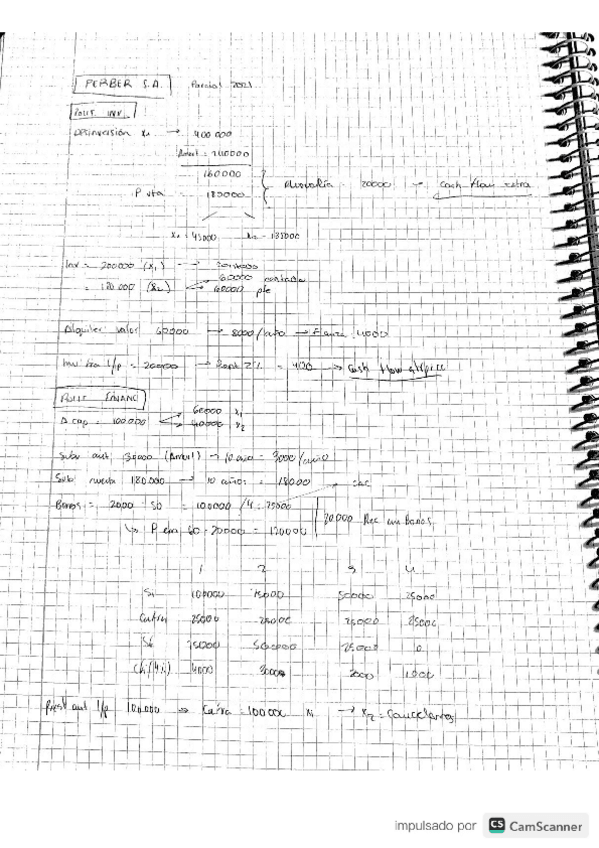 PERBER S.A. Parcial 2021
POLIT. INV.
Desinversión x1 → 400.000
Amort = 240000
160000
P vta = 180000 Plusvalía = 20000 → Cash flow extra
x1 = 45000 x2 = 135000
Inv = 200.000 (x1) →
= 120.000 (x2) 60000 contado
60000 pte
Alquiler valor 60000 → 8000/año → Fianza 4000
Inv fra l/p = 200000 → Rent 2% = → Cash flow
POLIT. FINANC
A cap = 100000 60000 x1
40000 x2
Subv ant 30000 (Amort) → 10 año = 3000/año
Subv nueva 180.000 → 10 años = 18000
Bonos = 2000 50 = 100000 /4 = 25000
↳ P em 60 · 2000 = 120000 20000 Rec em Bonos
1 2 3 4
Si 100000 75000 50000 25000
Cuota 25000 25000 25000 25000
Sf 75000 50000 25000 0
4000 3000 2000 1000
Prest ant l/p 100.000 → 100000 → x2 = Cancelamos
impulsado por CS CamScanner